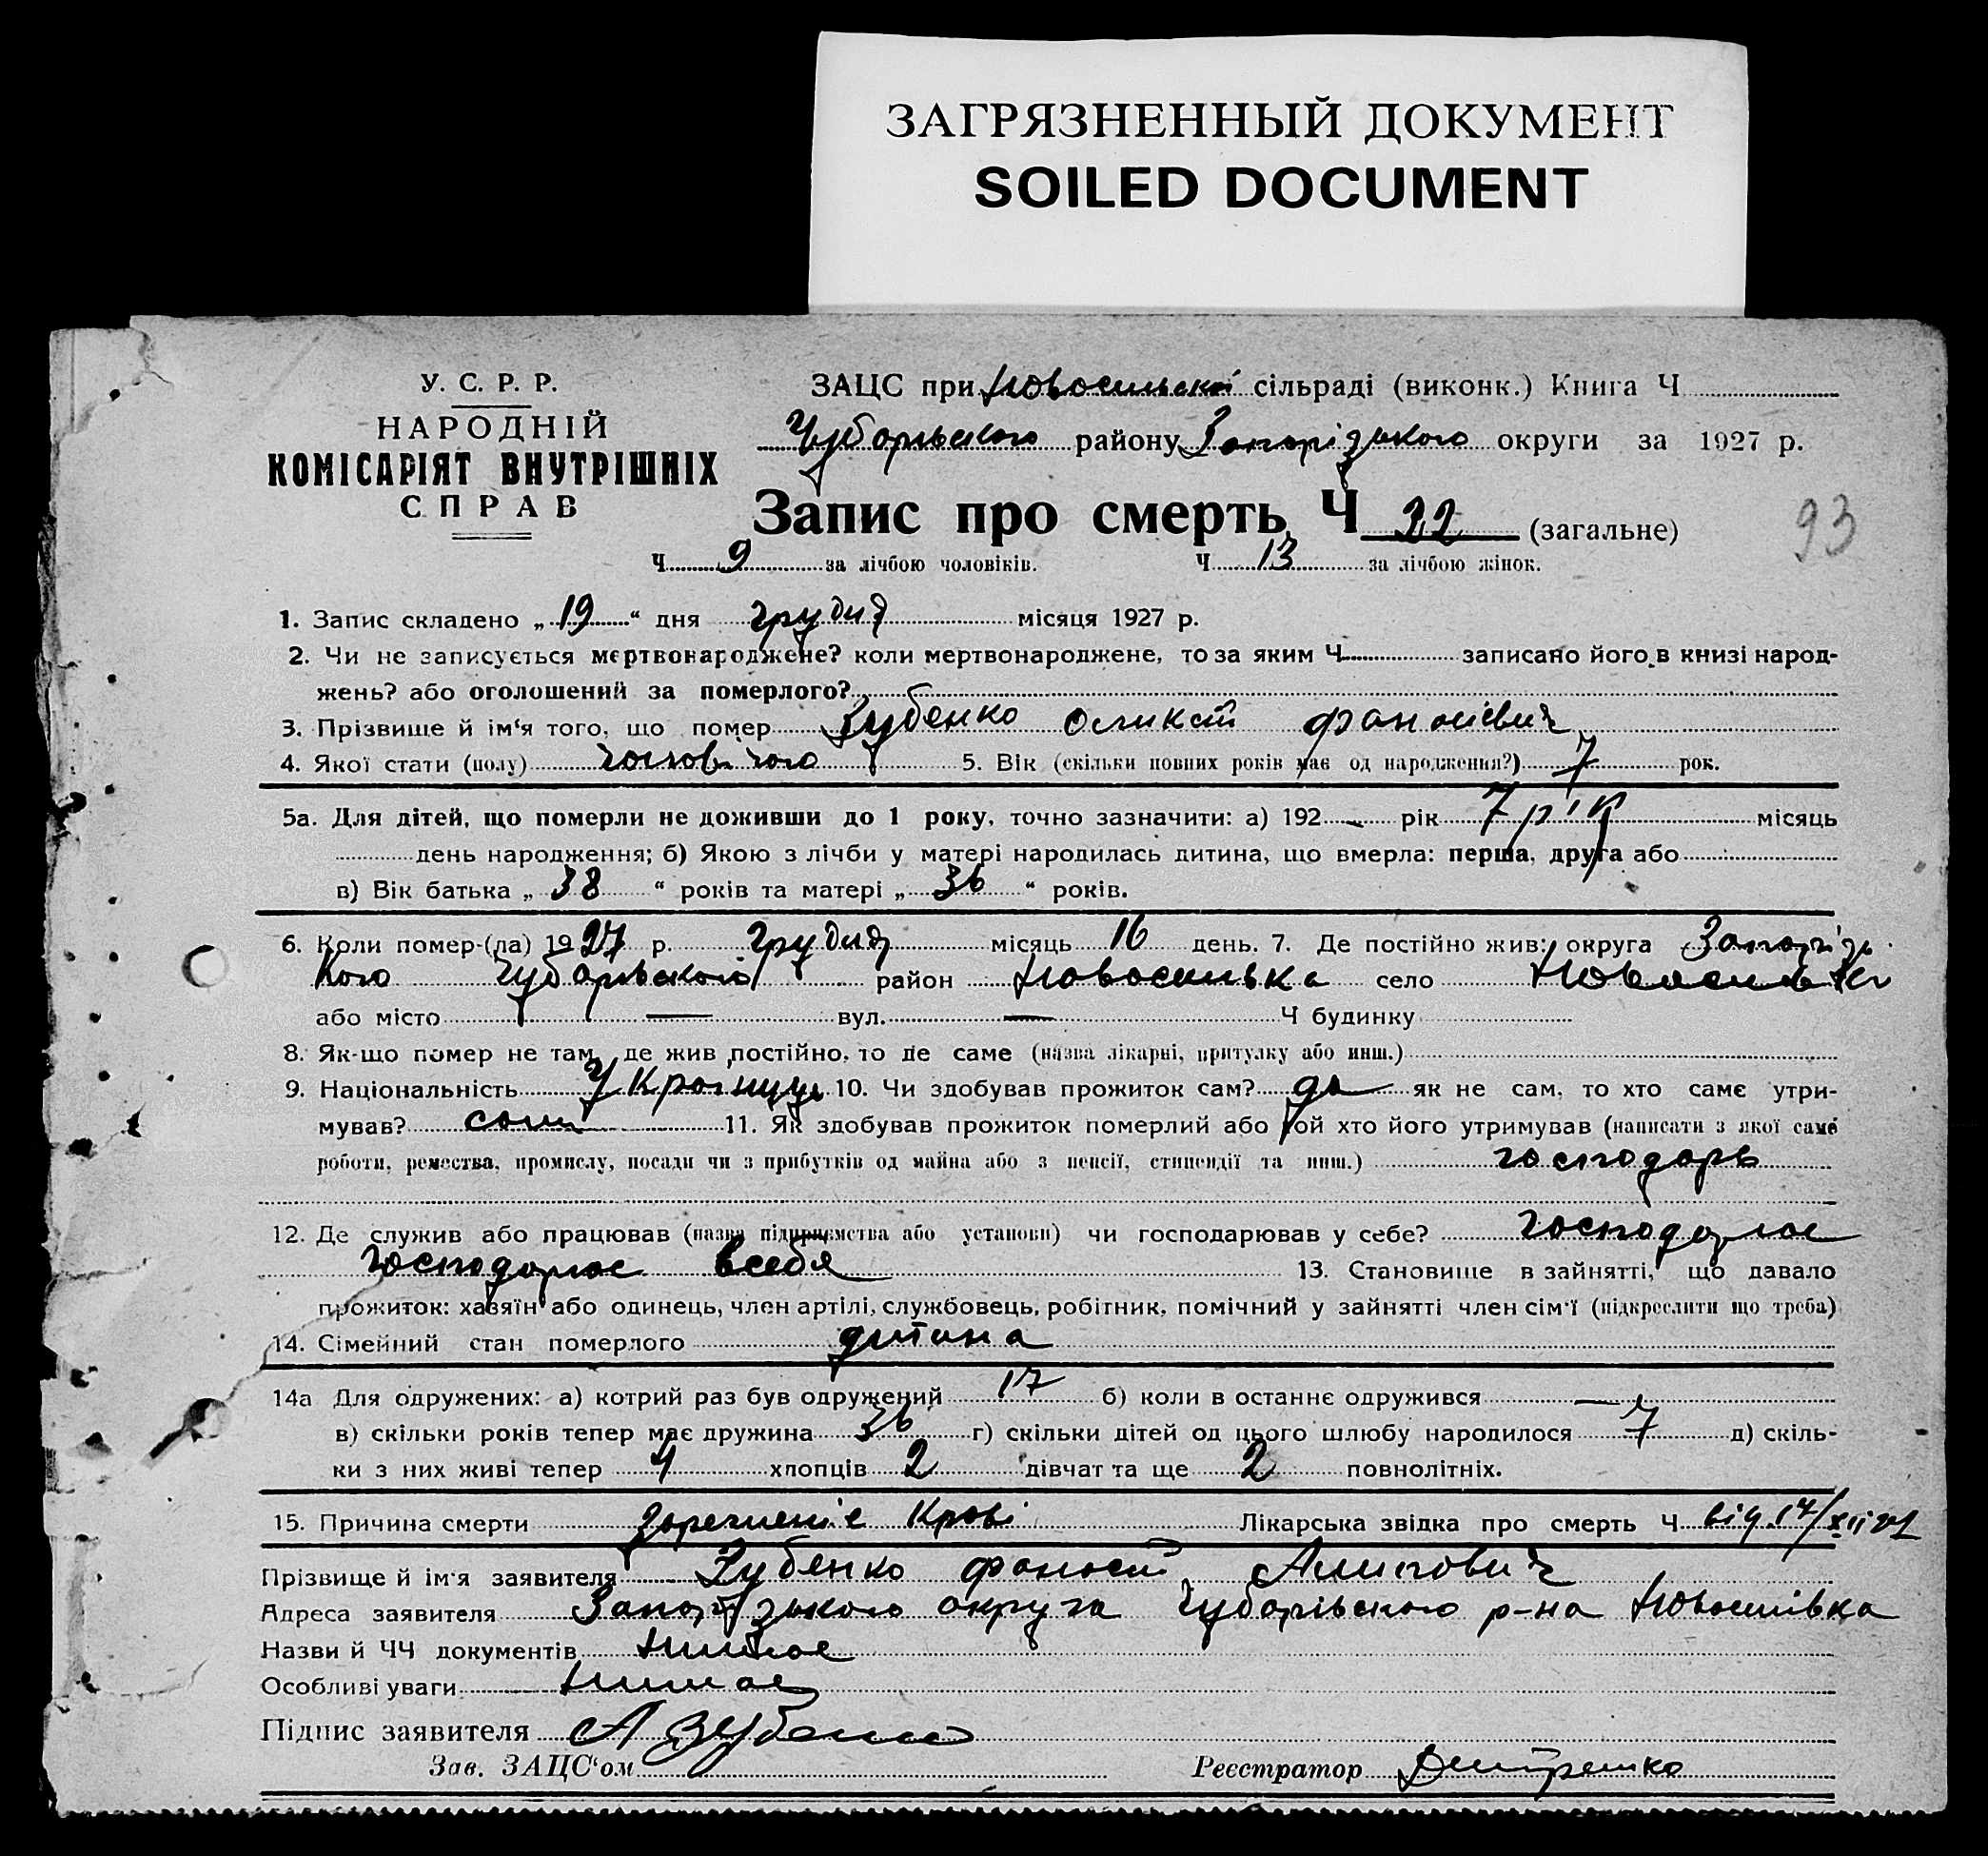 ЗАГРЯЗНЕННЫЙ ДОКУМЕНТ
SOILED DOCUMENT
У. С. Р. Р.
НАРОДНІЙ
КОМІСАРІЯТ ВНУТРІШНІХ
СПРАВ
ЗАЦС при Новосильській сільраді (виконк.) Книга Ч
Чубарьвського району Запорізького округи за 1927 р.
Запис про смерть Ч 22 (загальне)
93
Ч 9 за лічбою чоловіків. Ч 13 за лічбою жінок.
1. Запис складено „ 19 “ дня грудня місяця 1927 р.
2. Чи не записується мертвонароджене? коли мертвонароджене, то за яким Ч записано його в книзі народ-
жень? або оголошений за померлого?
3. Прізвище й ім‘я того, що помер Зубенко
4. Якої стати (полу) чоловічого 5. Вік (скільки повних років має од народження?) 7 рок.
5а. Для дітей, що померли не доживши до 1 року, точно зазначити: а) 192 рік 7 рік місяць
день народження; б) Якою з лічби у матері народилась дитина, що вмерла: перша, друга або
в) Вік батька „ 38 “ років та матері „ 36 “ років.
6. Коли помер-(ла) 1927 р. грудня місяць 16 день. 7. Де постійно жив: округа Запорізь
кого Чубарьвського район Новосилька село
або місто — вул. — Ч будинку
8. Як-що помер не там, де жив постійно, то де саме (назва лікарні, притулку або инш.)
9. Національність 10. Чи здобував прожиток сам? да як не сам, то хто саме утри-
мував? сам 11. Як здобував прожиток померлий або той хто його утримував (написати з якої саме
роботи, ремества, промислу, посади чи з прибутків од майна або з пенсії, стипендії та инш.) господарь
12. Де служив або працював (назва підприємства або установи) чи господарював у себе? господарює
господарює всебя 13. Становище в зайнятті, що давало
прожиток: хазяїн або одинець, член артілі, службовець, робітник, помічний у зайнятті член сім‘ї (підкреслити що треба)
14. Сімейний стан померлого дитина
14а Для одружених: а) котрий раз був одружений 17 б) коли в останнє одружився —
в) скільки років тепер має дружина 36 г) скільки дітей од цього шлюбу народилося 7 д) скіль-
ки з них живі тепер 4 хлопців 2 дівчат та ще 2 повнолітніх.
15. Причина смерти Крові Лікарська звідка про смерть Ч від 17/XII 27
Прізвище й ім‘я заявителя Зубенко
Адреса заявителя Запорізького округа Чубарівського р-на Новосилівка
Назви й ЧЧ документів Нимає
Особливі уваги Нимає
Підпис заявителя А Зубенко
Зав. ЗАЦС‘ом Реєстратор Дмитренко